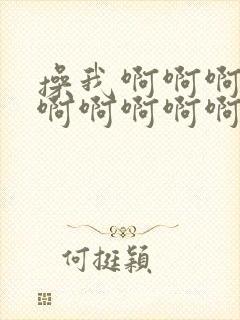 操我 啊啊啊
啊啊啊啊啊
何挺穎